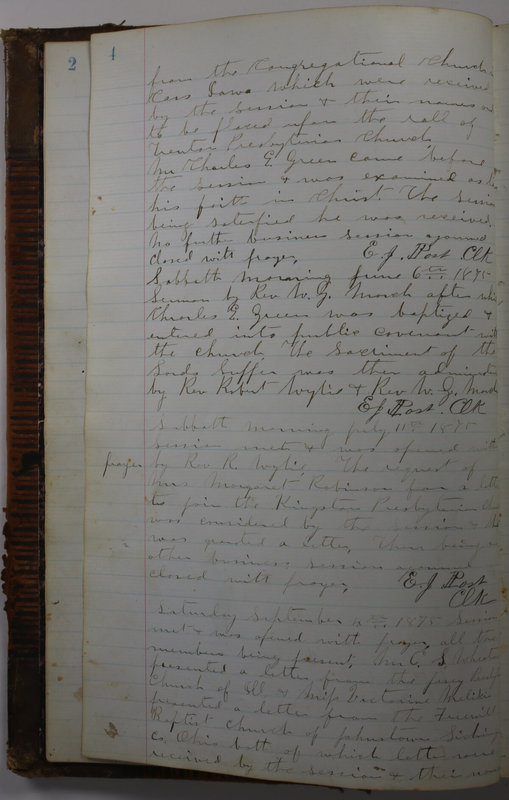 2 4
from the Congregational Church
Cass Iowa which were received
by the session & their names
to be placed upon the roll of
Newton Presbyterian Church,
Mr Charles E. Green came before
the session & was examined as
his faith in Christ. The Session
being satisfied he was received.
No further business session ajourned
closed with prayer, E. J. Post Clk
Sabbath morning June 6th 1875
Sermon by Rev W. G. March after which
Charles E. Green was baptized &
entered into public covenant with
the church. The Sacriment of the
Lords Supper was then
by Rev Robert Wylie & Rev. W. G. March
E J Post. Clk
Sabbath Morning July 11th 1875
session met & was opened with
prayer by Rev R. Wylie. The request of
Mrs Margaret Robinson for a letter
to join the Kingston Presbyterian
was considered by the session &
was granted a letter, There being no
other business session ajourned
closed with prayer, E J Post
Clk
Saturday September 1875 Session
met & was opened with prayer, all the
members being present, Mr C. S.
presented a letter from the
Church of Ill & Miss
presented a letter from the Freewill
Baptist Church of Johnstown Licking
Co Ohio both of which letters were
received by the session & their names